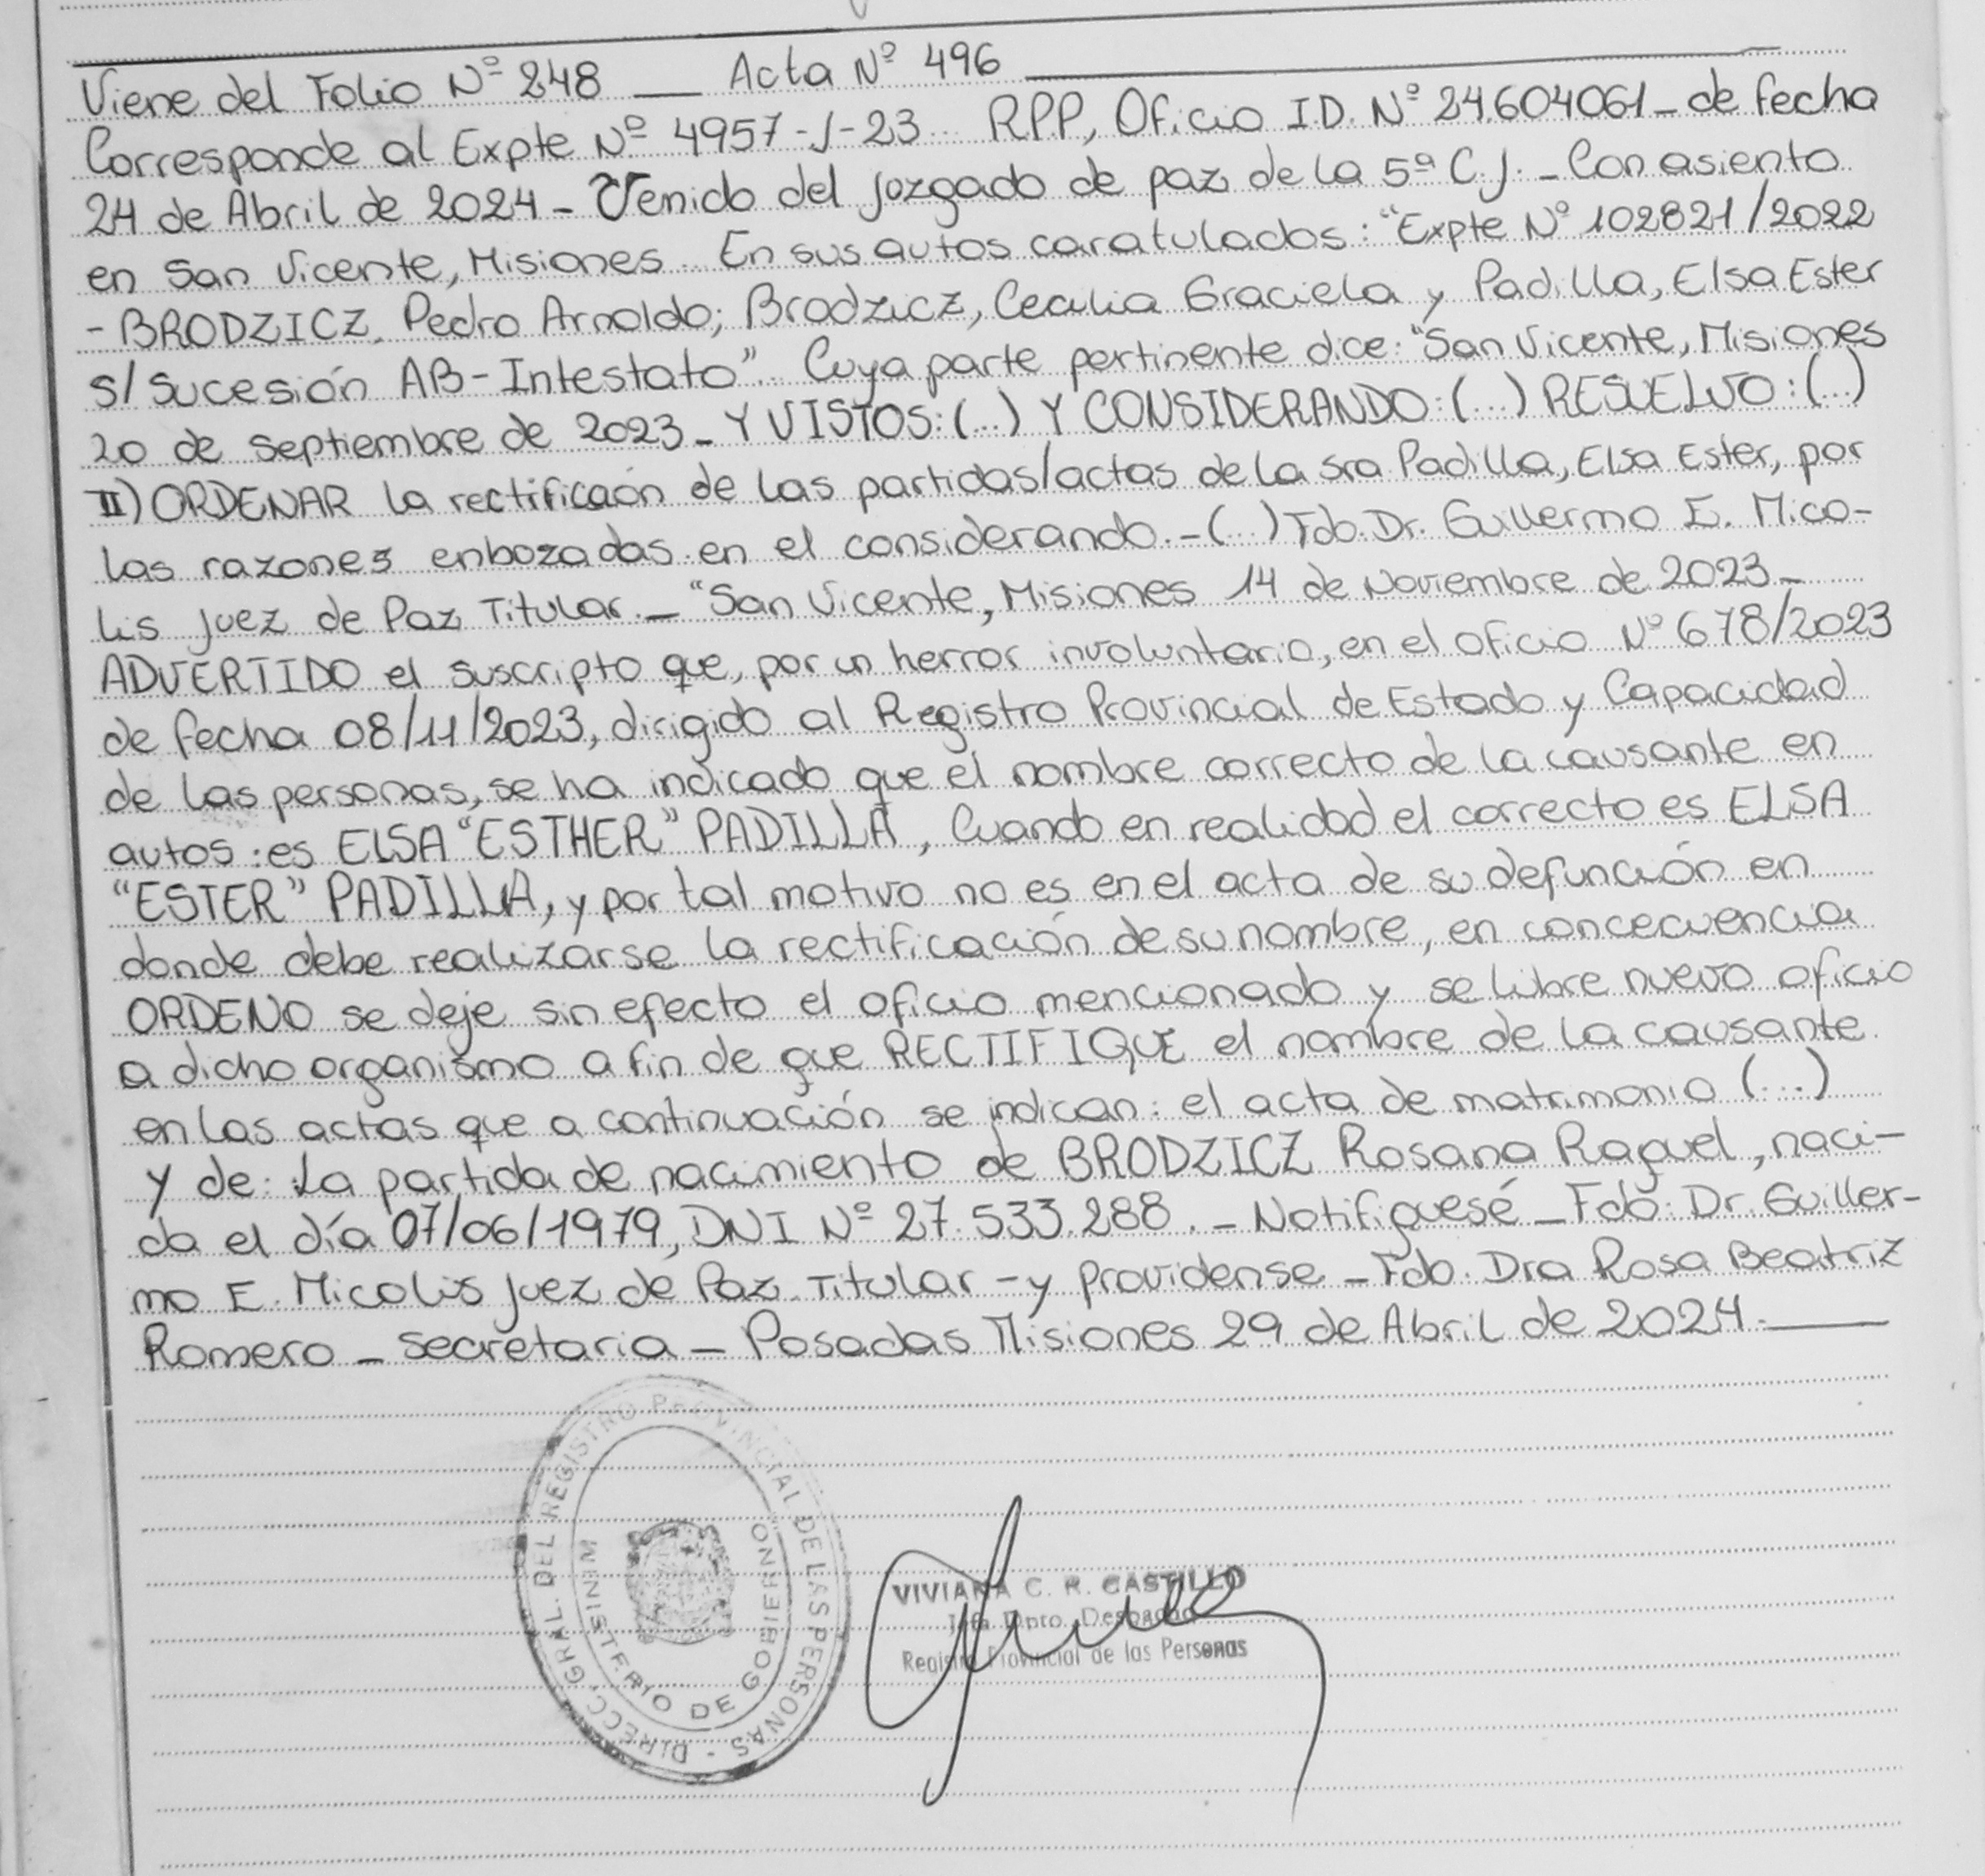 Viene del Folio Nº 248 __ Acta Nº 496
Corresponde al Expte Nº 4957-J-23. RPP, Oficio I.D. Nº 24.604061_ de fecha
24 de Abril de 2024_ Venido del Juzgado de paz de la 5ª C.J._ Con asiento
en San Vicente, Misiones. En sus autos caratulados: "Expte Nº 102821/2022
- BRODZICZ, Pedro Arnoldo; Brodzicz, Cecilia Graciela y Padilla, Elsa Ester
S/ Sucesión AB-Intestato". Cuya parte pertinente dice: "San Vicente, Misiones
20 de Septiembre de 2023_ Y VISTOS: (...) Y CONSIDERANDO: (...) RESUELVO: (...)
II) ORDENAR la rectificaón de las partidas/actas de la Sra Padilla, Elsa Ester, por
las razones enbozadas en el considerando.-(...) Fdo. Dr. Guillermo E. Mico-
lis Juez de Paz Titular._ "San Vicente, Misiones 14 de Noviembre de 2023_
ADVERTIDO el suscripto que, por un herror involuntario, en el oficio Nº 678/2023
de fecha 08/11/2023, dirigido al Registro Provincial de Estado y Capacidad
de las personas, se ha indicado que el nombre correcto de la causante en
autos: es ELSA "ESTHER" PADILLA, Cuando en realidad el correcto es ELSA
"ESTER" PADILLA, y por tal motivo no es en el acta de su defunción en
donde debe realizarse la rectificación de su nombre, en concecuencia
ORDENO se deje sin efecto el oficio mencionado y se libre nuevo oficio
a dicho organismo a fin de que RECTIFIQUE el nombre de la causante
en las actas que a continuación se indican: el acta de matrimonio (...)
y de: La partida de nacimiento de BRODZICZ Rosana Raquel, naci-
da el día 07/06/1979, DNI Nº 27.533.288._ Notifiquesé _ Fdo: Dr. Guiller-
mo E. Micolis Juez de Paz Titular - y Providense _ Fdo. Dra Rosa Beatriz
Romero _ Secretaria _ Posadas Misiones 29 de Abril de 2024.__
DIRECC. GRAL. DEL REGISTRO PROVINCIAL DE LAS PERSONAS -
MINISTERIO DE GOBIERNO
VIVIANA C. R. CASTILLO
Jefa Dpto. Despacho
Registro Provincial de las Personas